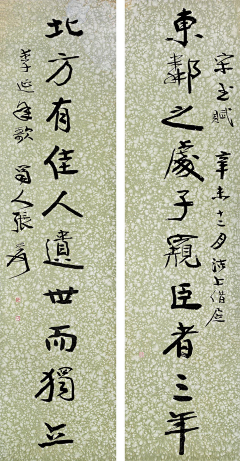 宋玉賦 辛未十二月
東鄰之處子窺臣者三年
北方有佳人遺世而獨立
李延年歌 蜀人張爰